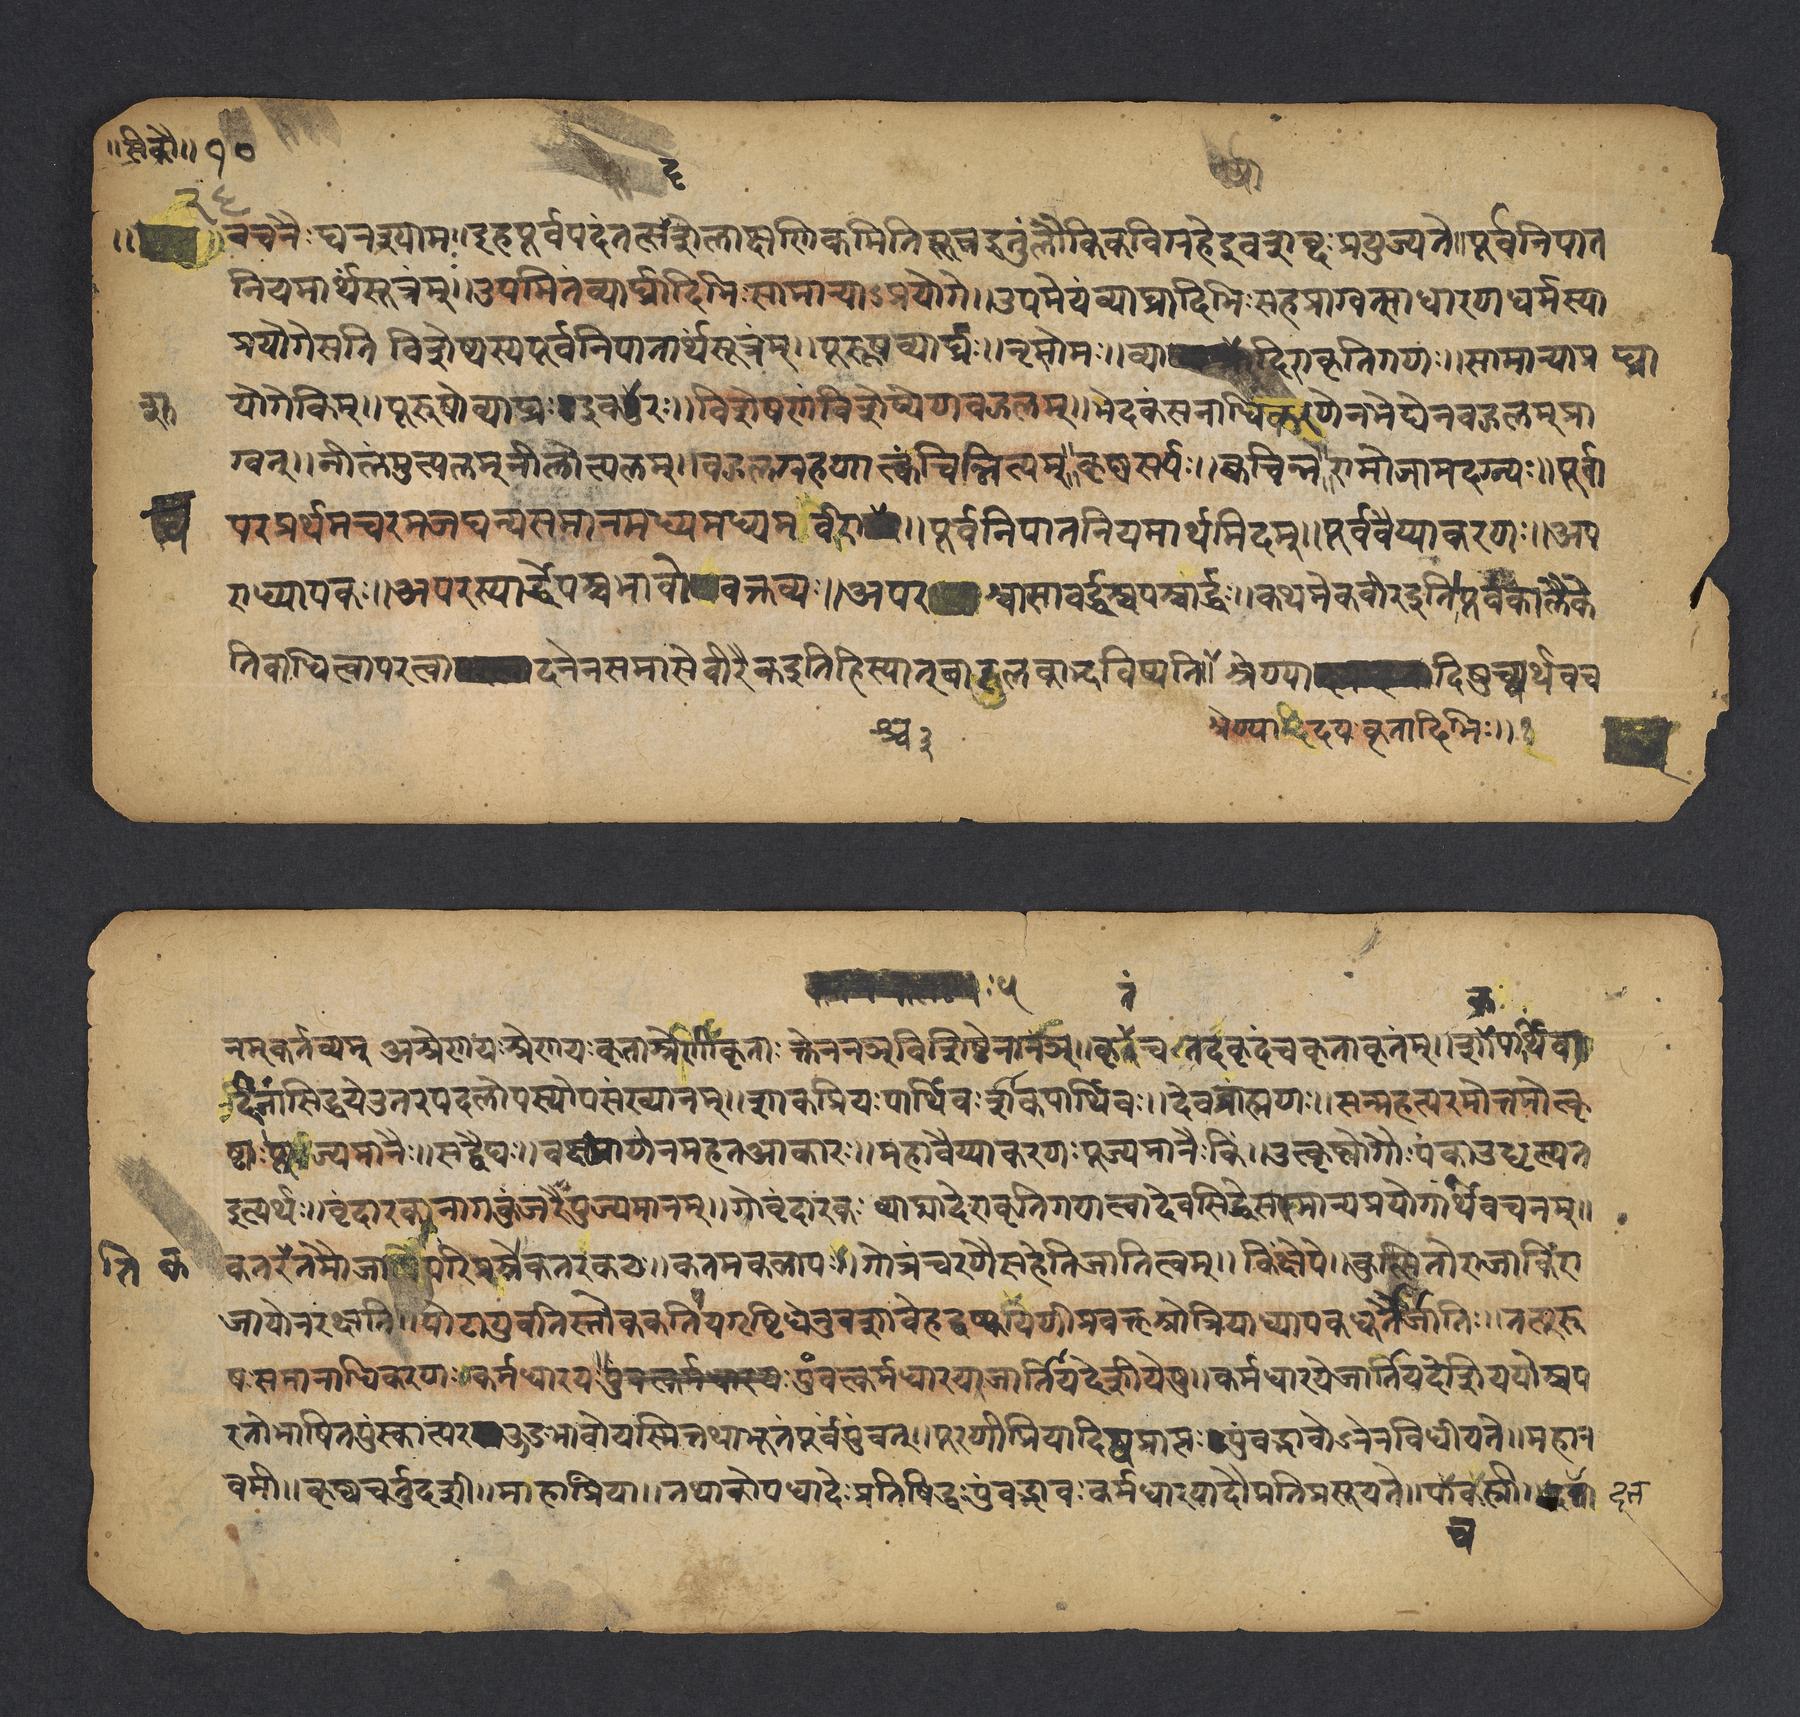 ॥सिकौ॥ १०
२६
वचनैः घनश्यामः॥ इहपूर्वपदंतत्सदृशेलाक्षणिकमितिसूचयितुंलौकिकविग्रहेइवशब्दः प्रयुज्यते॥ पूर्वनिपात
नियमार्थंसूत्रम्॥ उपमितंव्याघ्रादिभिःसामान्याऽप्रयोगे॥ उपमेयंव्याघ्रादिभिःसहप्राग्वत्साधारणधर्मस्या
प्रयोगेसति विशेष्यस्यपूर्वनिपातार्थंसूत्रम्॥ पुरूषव्याघ्रः॥ नृसोमः॥ व्या दिराकृतिगणः॥ सामान्याप्र घ्रा
योगेकिम्॥ पुरूषोव्याघ्रः इवशूरः॥ विशेषणंविशेष्येणबहुलम्॥ भेदकंसमानाधिकरणेनभेद्येनबहुलम्प्रा
ग्वत्॥ नीलमुत्पलम्नीलोत्पलम्॥ बहुलग्रहणात्क्वचिन्नित्यम् कृष्णसर्पः॥ क्वचिन्न रामोजामदग्न्यः॥ पूर्वा
परप्रथमचरमजघन्यसमानमध्यमध्यम वीराश्च॥ पूर्वनिपातनियमार्थमिदम्॥ पूर्ववैय्याकरणः॥ अप
राध्यापकः॥ अपरस्यार्द्धेपश्चभावो वक्तव्यः॥ अपर श्चासावर्द्धश्चपश्चार्द्धः॥ कथमेकवीरइति पूर्वकालैके
तिबाधित्वापरत्वा दनेनसमासेवीरैकइतिहिस्यात्बाहुलकाद्भविष्यति॥ श्रेण्या दिषुच्व्यर्थवच
श्रेण्या दयः कृतादिभिः॥
नम्कर्तव्यम् अश्रेणयःश्रेणयःकृताःश्रेणीकृताः क्तेननञ्विशिष्टेनानञ्॥ कृतंच तदकृतंचकृताकृतम्॥ शाकपार्थिवा
दीनांसिद्धयेउत्तरपदलोपस्योपसंख्यानम्॥ शाकप्रियःपार्थिवः शाकपार्थिवः॥ देवब्राह्मणः॥ सन्महत्परमोत्तमोत्कृ
ष्टाःपूज्यमानैः॥ सद्वैद्यः॥ वक्ष्यमाणेनमहतआकारः॥ महावैय्याकरणः पूज्यमानैःकिं॥ उत्कृष्टोगौः पंकाउद्धृत्यत
इत्यर्थः॥ वृंदारकनागकुंजरैःपुज्यमानम्॥ गोवृंदारकः व्याघ्रादेराकृतिगणत्वादेवसिद्धेसामान्यप्रयोगार्थंवचनम्॥
कतरकतमौजातिपरिप्रश्नेकतरकठः॥ कतमकलापः॥ गोत्रंचरणैःसहेतिजातित्वम्॥ किंक्षेपे॥ कुत्सितोराजाकिंरा
जायोनरक्षति॥ पोटायुवतिस्तोककतिपयगृष्टिधेनुवशावेहद्बष्कयणीप्रवक्तृश्रोत्रियाध्यापकधूर्तैर्जातिः॥ तत्पुरू
षःसमानाधिकरणः कर्मधारयः पुंवत्कर्मधारयजातीयदेशीयेषु॥ कर्मधारयेजातीयदेशीययोश्चप
रतोभाषितपुंस्कात्परऊङभावोयस्मिन्तथाभूतंपूर्वंपुंवत्॥ पूरणीप्रियादिष्वप्राप्तः पुंवद्भावोऽनेनविधीयते॥ महान
वमी॥ कृष्णचतुर्दशी॥ महाप्रिया॥ तथाकोपधादेःप्रतिषिद्धःपुंवद्भावःकर्मधारयादौप्रतिप्रसूयते॥ पाचकस्त्री॥